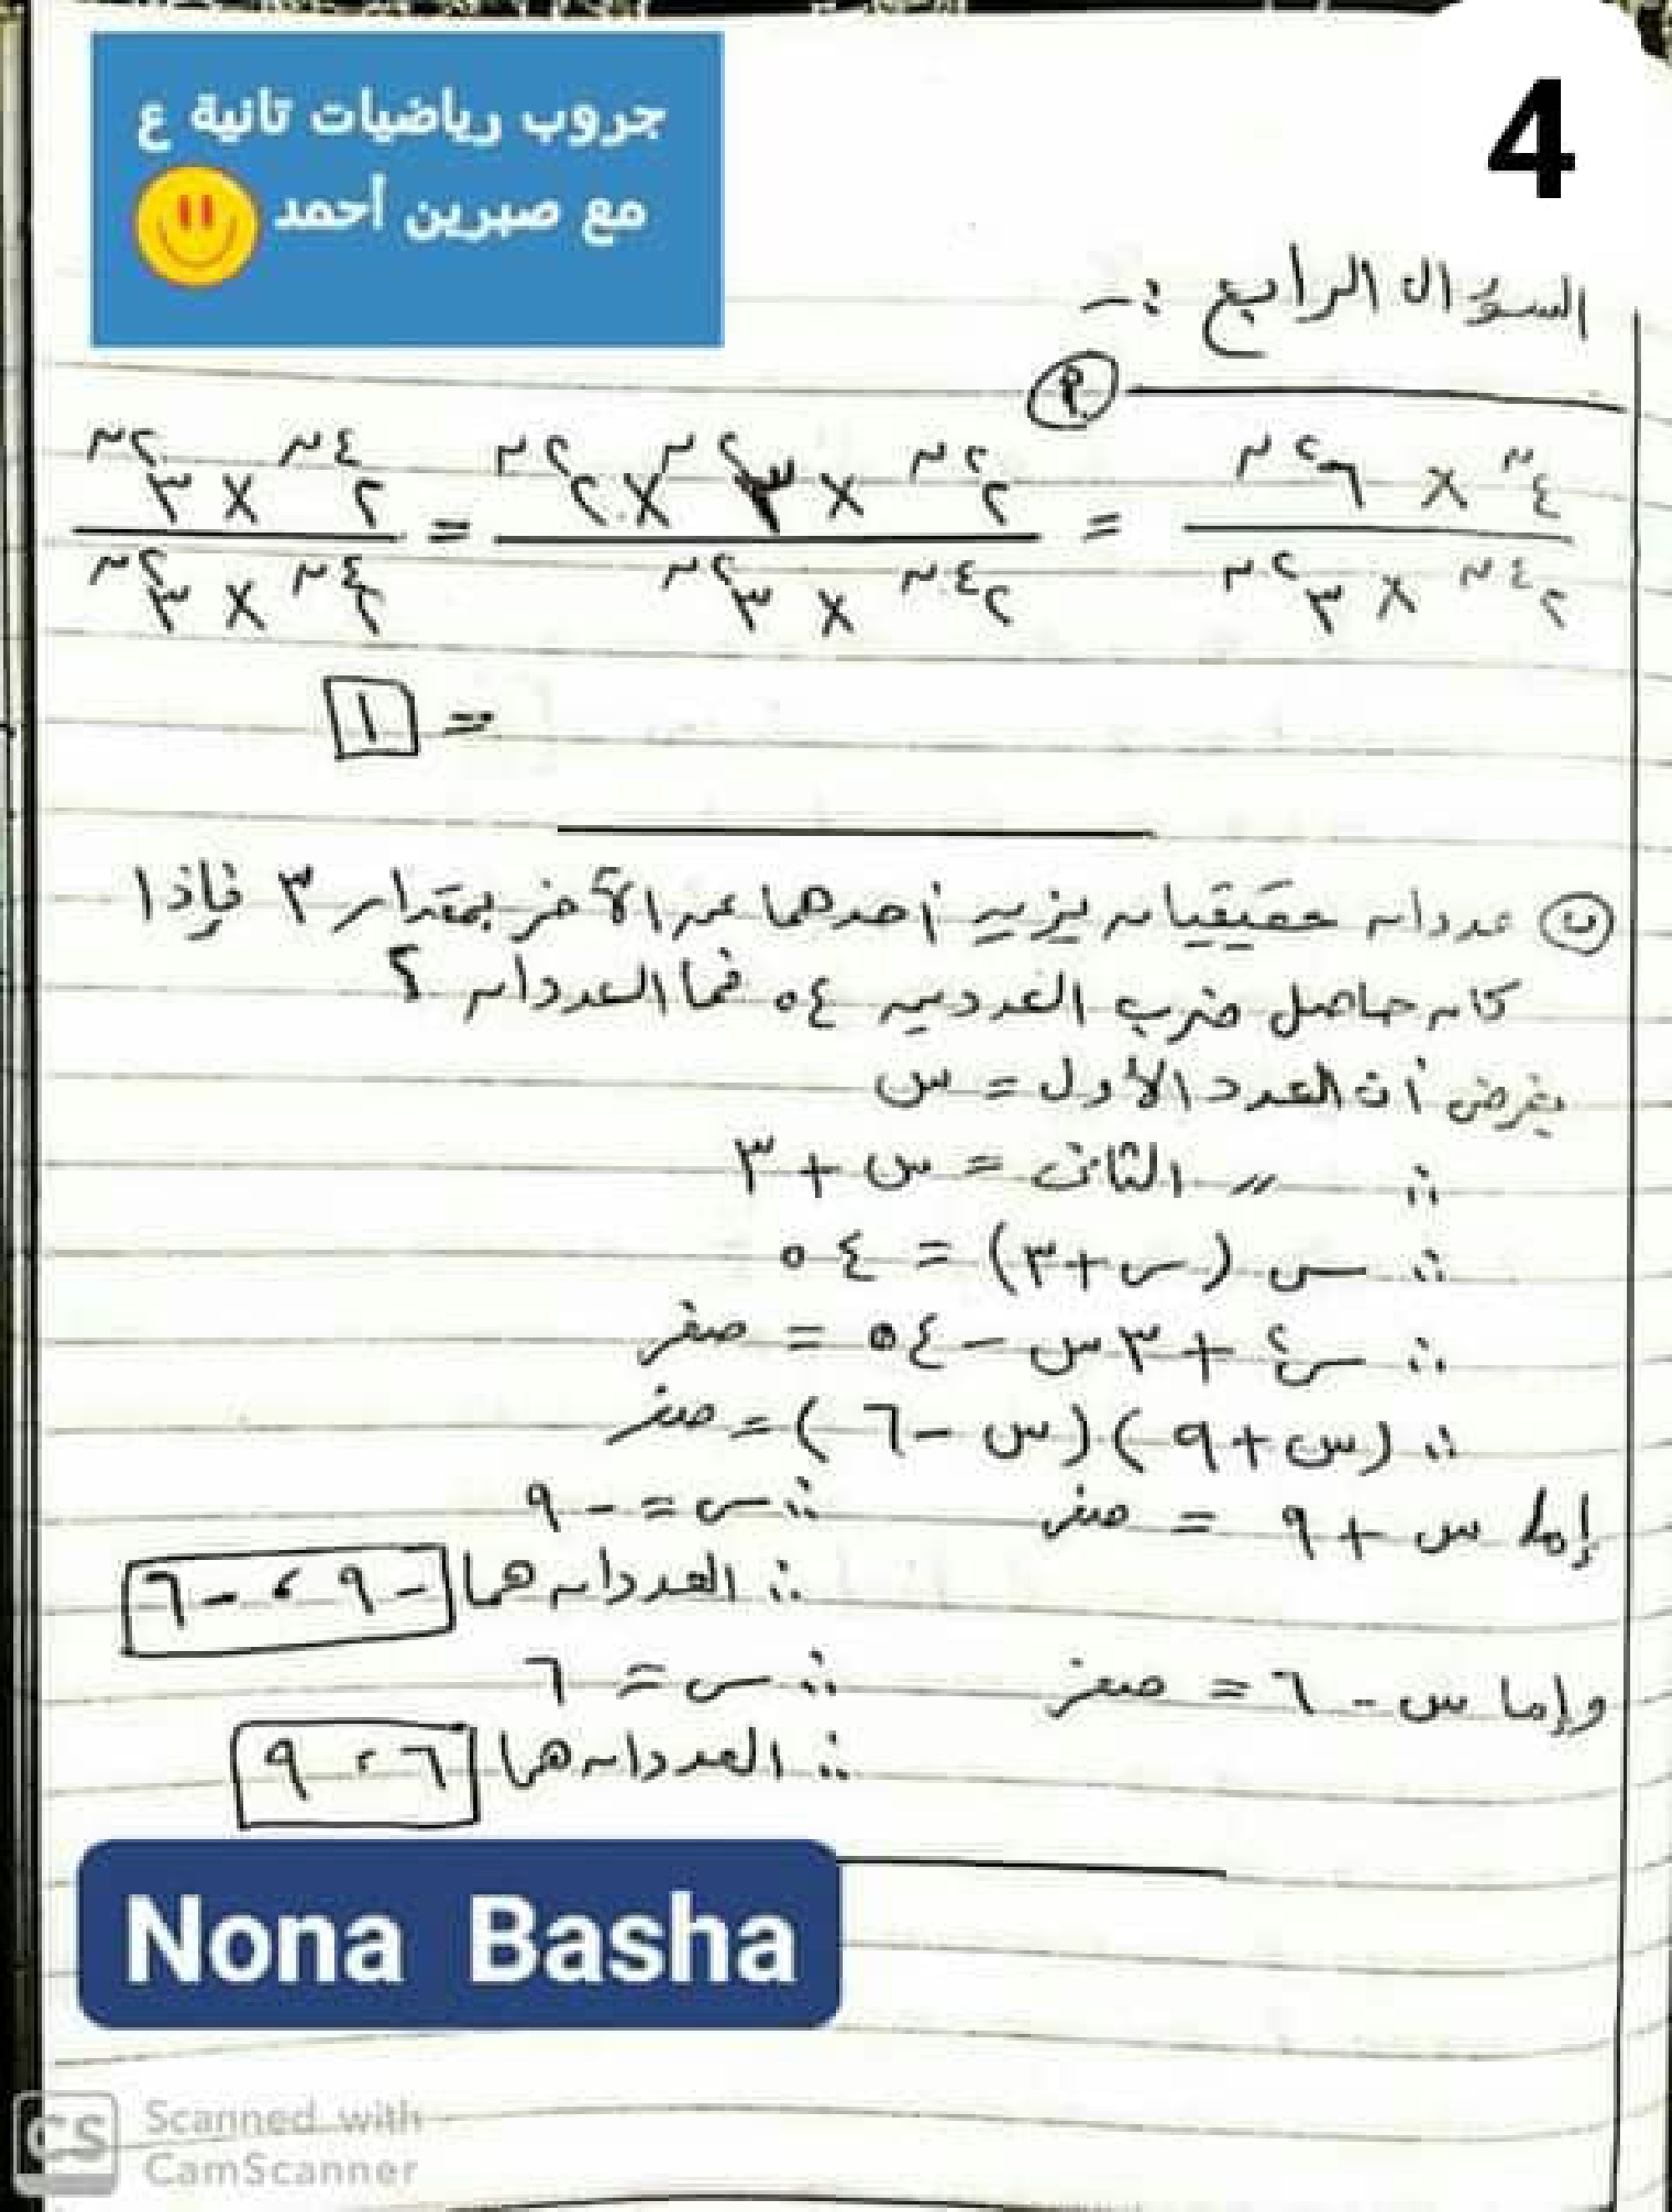 جروب رياضيات تانية ع
مع صبرين أحمد
4
السؤال الرابع :-
أ
٤^ن × ٦^٢ن / ٢^٤ن × ٣^٢ن = ٢^٢ن × ٣^٢ن × ٢^٢ن / ٢^٤ن × ٣^٢ن = ٢^٤ن × ٣^٢ن / ٢^٤ن × ٣^٢ن
= ١
ب عددان حقيقيان يزيد أحدهما عن الآخر بمقدار ٣ فإذا
كان حاصل ضرب العددين ٥٤ فما العددان ؟
بفرض أن العدد الأول = س
∴ 〃 الثانى = س + ٣
∴ س (س+٣) = ٥٤
∴ س٢ + ٣س - ٥٤ = صفر
∴ (س+٩)(س-٦) = صفر
إما س + ٩ = صفر ∴ س = -٩
∴ العددان هما -٩ ، -٦
وإما س - ٦ = صفر ∴ س = ٦
∴ العددان هما ٦ ، ٩
Nona Basha
CS Scanned with
CamScanner